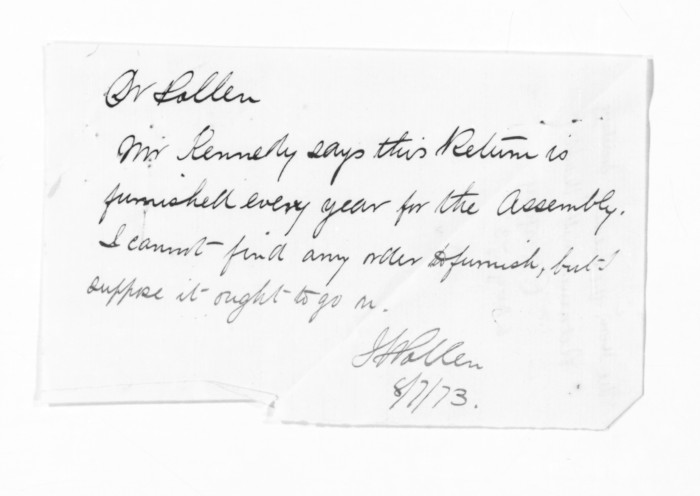 Dr Pollen
Mr Kennedy says this Return is
furnished every year for the Assembly.
I cannot find any order to furnish, but I
suppose it ought to go on.
Pollen
8/7/73.